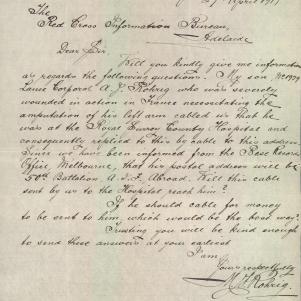 27 April 191
The
Red Cross Information Bureau,
Adelaide
Dear Sir,
Will you kindly give me information
as regards the following questions. My son No 1979
Lance Corporal A. J. Rohrig who was severely
wounded in action in France necessitating the
amputation of his left arm cabled us that he
was at the Royal Surrey County Hospital and
consequently replied to this by cable to this address
Since we have been informed from the Base Records
Office, Melbourne, that his postal address will be
50th Battalion A.I.F. Abroad. Will this cable
sent by us to the Hospital reach him?
If he should cable for money
to be sent to him, which would be the best way?
Trusting you will be kind enough
to send these answers at your earliest
I am
Yours respectfully
Rohrig